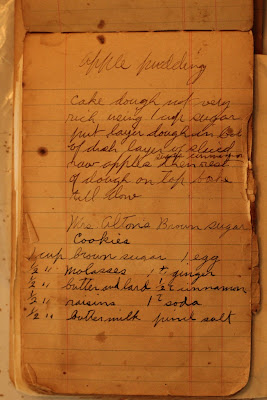 apple pudding
Cake dough not very
rich using 1 cup sugar
put layer dough in bot
of dish layer of sliced
sugar cinnamon
raw apples then rest
of dough on top bake
till done
Mrs Altons Brown sugar
Cookies
1 cup brown sugar 1 egg
1/2 " molasses 1 t ginger
1/2 " butter and lard 1/2 t cinnamon
1/2 " raisins 1 t soda
1/2 " buttermilk pinch salt